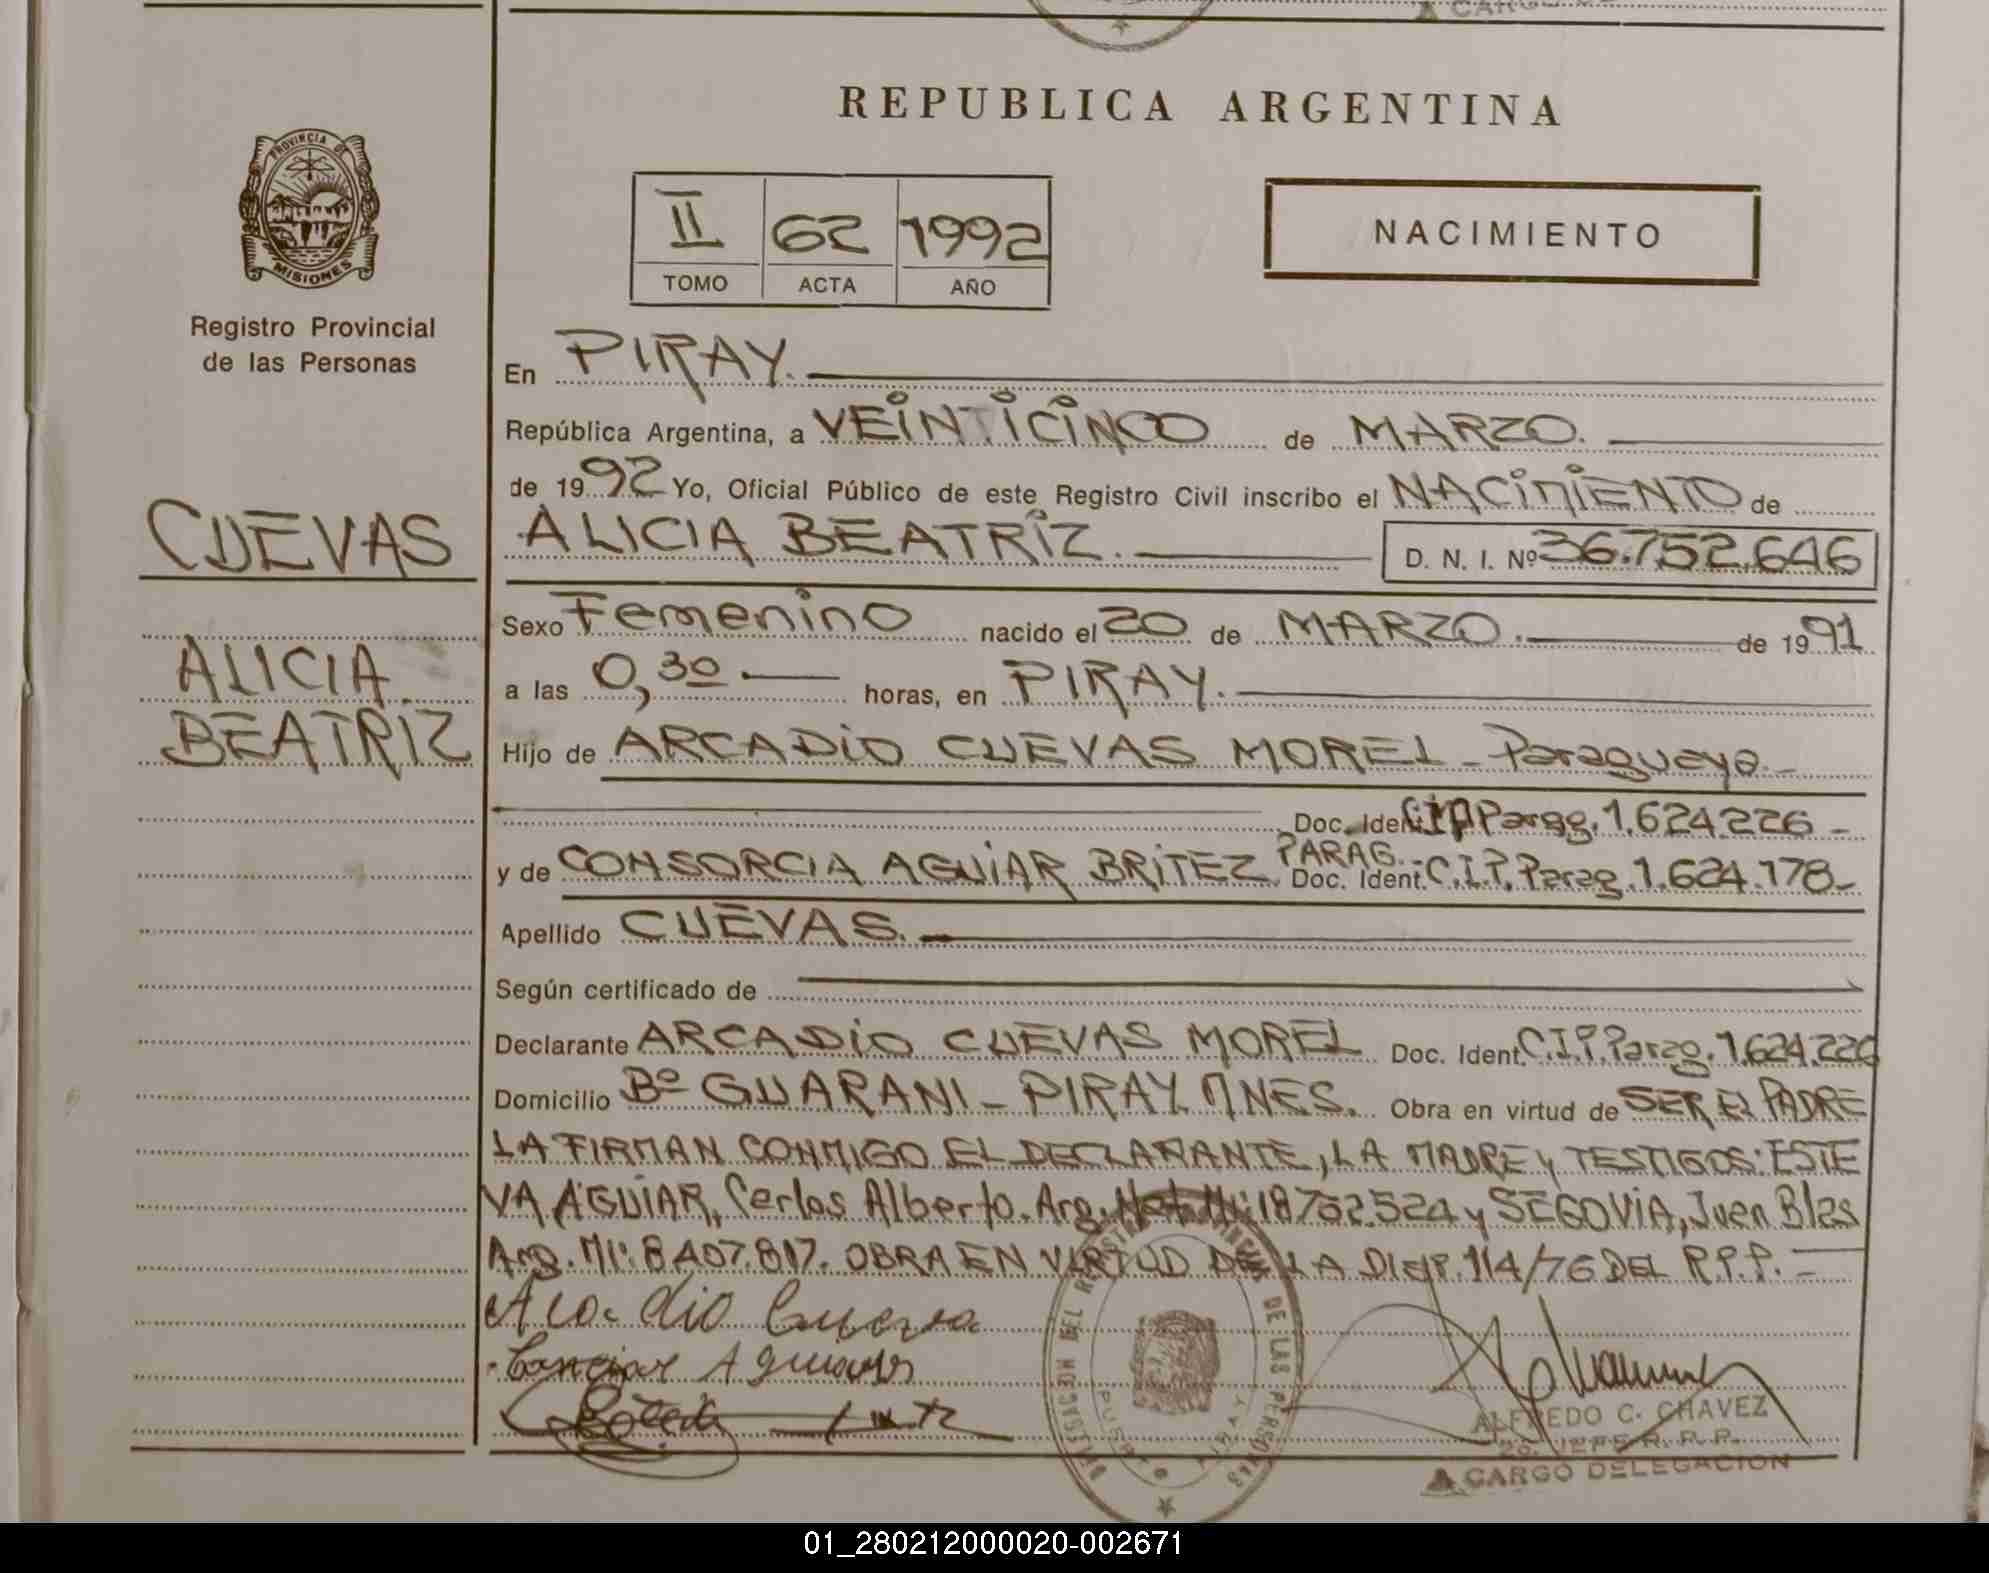 A CARGO
REPUBLICA ARGENTINA
PROVINCIA DE
MISIONES
Registro Provincial
de las Personas
II 62 1992
TOMO ACTA AÑO
NACIMIENTO
CUEVAS
ALICIA
BEATRIZ
En PIRAY.
República Argentina, a VEINTICINCO de MARZO.
de 1992 Yo, Oficial Público de este Registro Civil inscribo el NACIMIENTO de
ALICIA BEATRIZ. D. N. I. Nº 36.752.646
Sexo Femenino nacido el 20 de MARZO. de 1991
a las 0,30 horas, en PIRAY.
Hijo de ARCADIO CUEVAS MOREL - Paraguayo -
Doc. Ident. C.I.P. Parag. 1.624.226 -
y de CONSORCIA AGUIAR BRITEZ PARAG. - Doc. Ident. C.I.P. Parag. 1.624.178 -
Apellido CUEVAS.
Según certificado de
Declarante ARCADIO CUEVAS MOREL Doc. Ident. C.I.P. Parag. 1.624.226
Domicilio Bº GUARANI - PIRAY. MNES. Obra en virtud de SER EL PADRE
LA FIRMAN CONMIGO EL DECLARANTE, LA MADRE Y TESTIGOS: ESTE
VA AGUIAR, Carlos Alberto. Arg. 18.762.524 y SEGOVIA, Juan Blas
Arg. MI: 8.407.817. OBRA EN VIRTUD DE LA DISP. 114/76 DEL R.P.P.
DELEGACION DEL REGISTRO PROVINCIAL DE LAS PERSONAS
PUERTO PIRAY
ALFREDO C. CHAVEZ
2o. JEFE R. P. P.
A CARGO DELEGACION
01_280212000020-002671